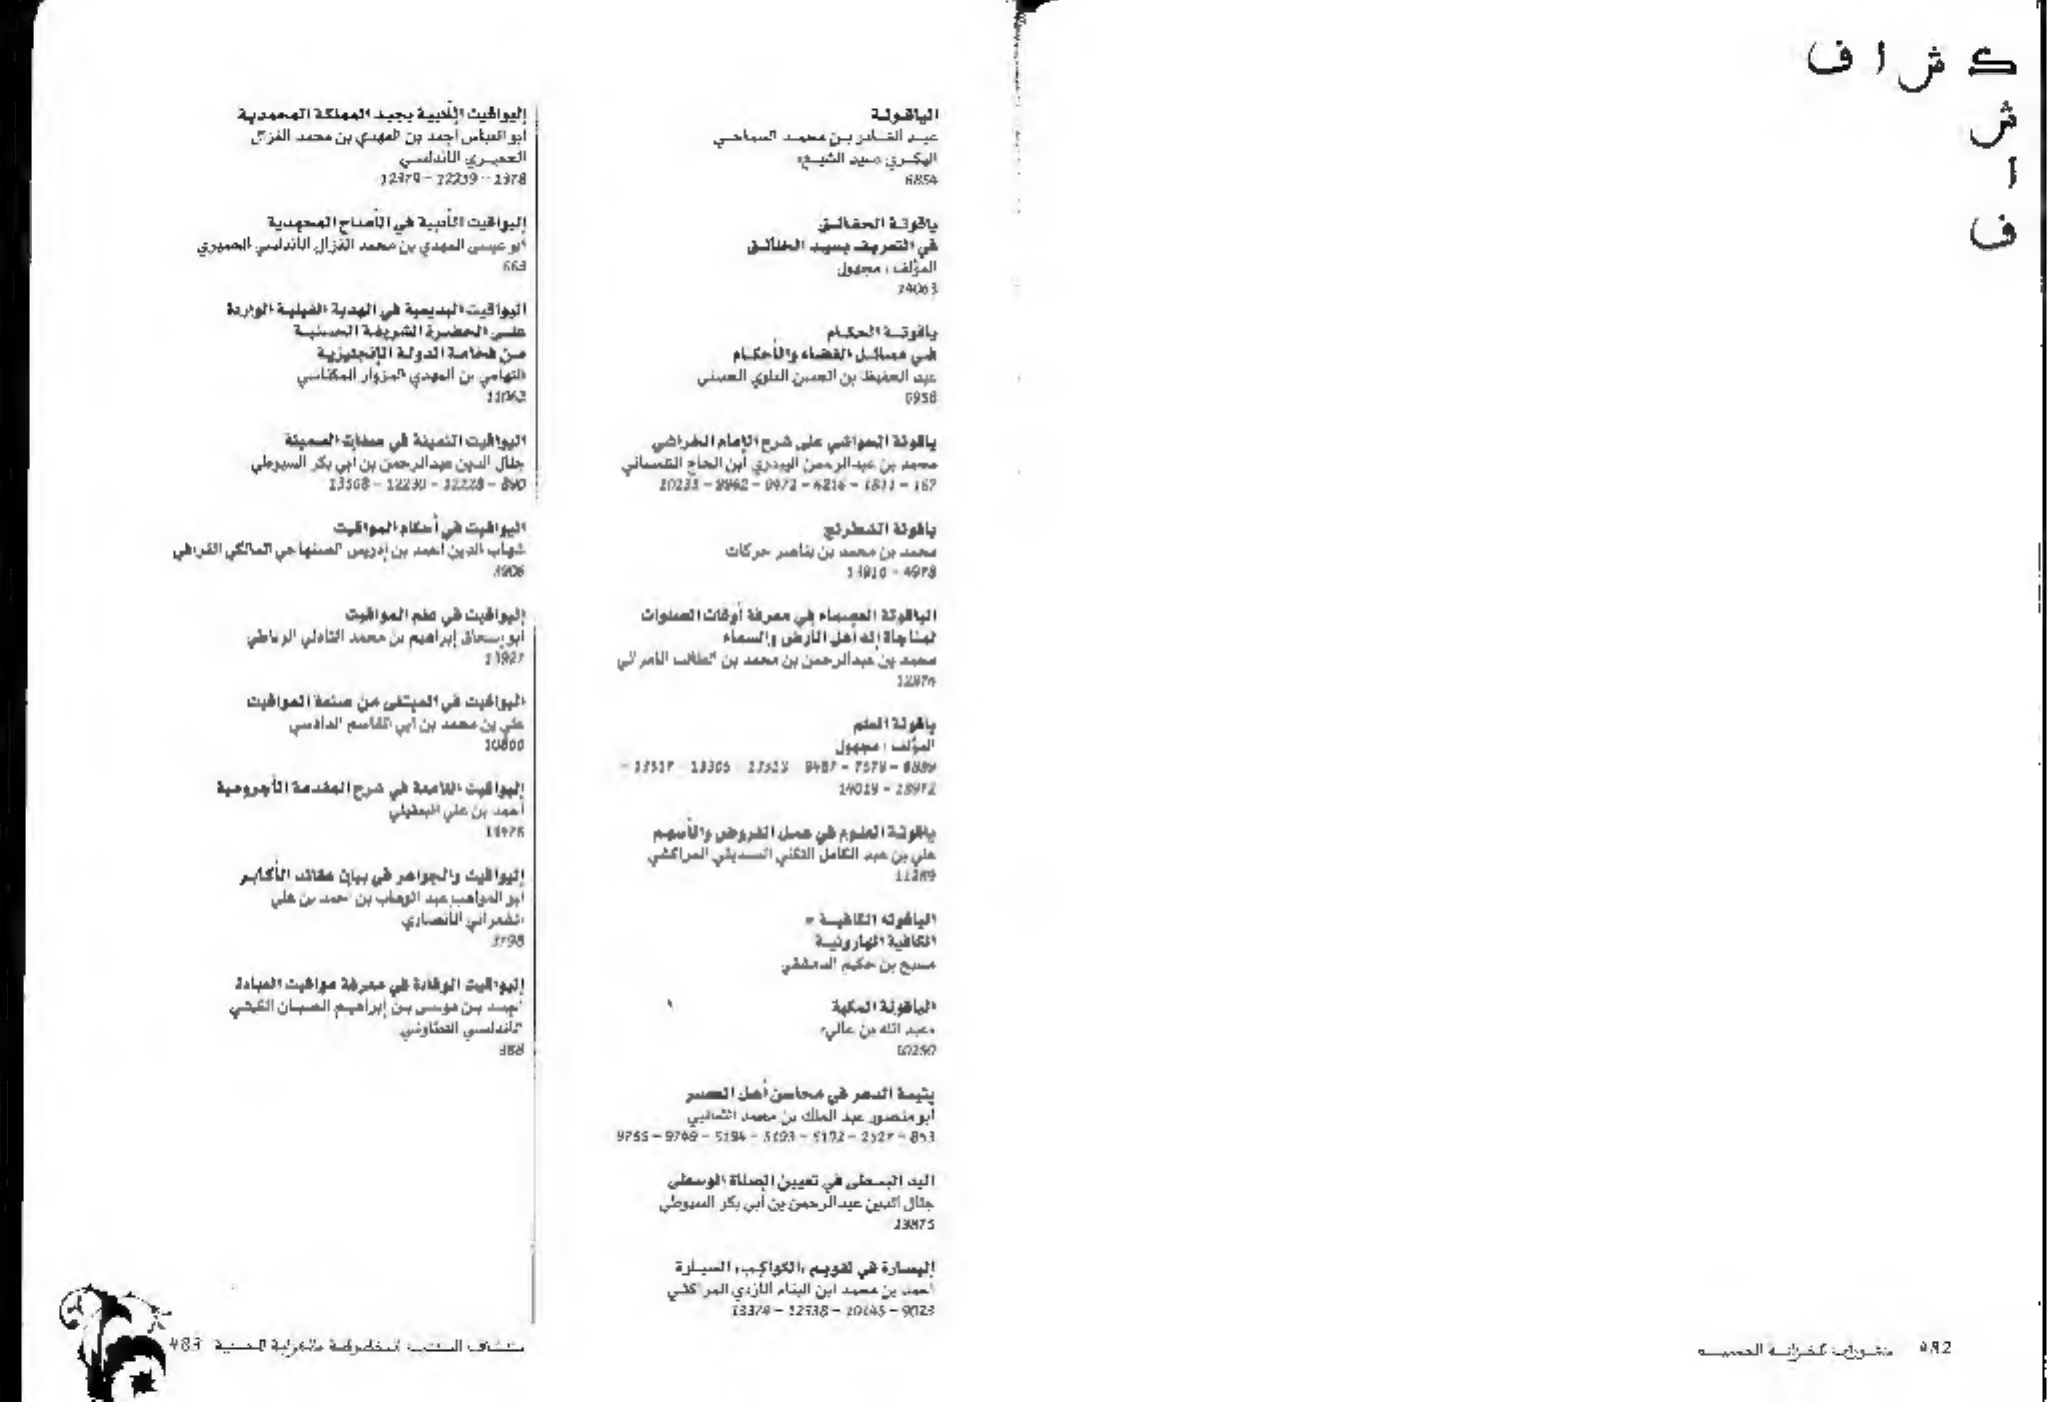 ك ش ا ف
ش
ا
ف
482 منشورات الخزانة الحسنية
الياقوتة
عبد القادر بن محمد السماحي
البكري «سيد الشيخ»
6854
ياقوتة الحقائق
في التعريف بسيد الخلائق
المؤلف : مجهول
14063
ياقوتة الحكام
في مسائل القضاء والأحكام
عبد الحفيظ بن الحسن العلوي الحسني
6958
ياقوتة الحواشي على شرح الإمام الخراشي
محمد بن عبدالرحمن العبدري ابن الحاج التلمساني
167 – 1811 – 6216 – 9472 – 9962 – 10233
ياقوتة الشطرنج
محمد بن محمد بن بناصر حركات
4978 – 13910
الياقوتة العصماء في معرفة أوقات الصلوات
لمناجاة إله أهل الأرض والسماء
محمد بن عبدالرحمن بن محمد بن الطالب
12974
ياقوتة العلم
المؤلف : مجهول
13517 –
13972 – 14019
ياقوتة العلوم في عمل الفروض والأسهم
علي بن عبد الكامل المراكشي
11289
الياقوتة الكافية =
الكافية الهارونية
مسيح بن حكيم الدمشقي
الياقوتة المكية
«عبد الله بن عالي»
10250
يتيمة الدهر في محاسن أهل العصر
أبو منصور عبد الملك بن محمد الثعالبي
853 – 2527 – 5192 – 5193 – 5194 – 9749 – 9755
اليد البسطى في تعيين الصلاة الوسطى
جلال الدين عبدالرحمن بن أبي بكر السيوطي
13875
اليسارة في تقويم «الكواكب» السيارة
أحمد بن محمد ابن البناء الأزدي المراكشي
9023 – 10645 – 12538 – 13374
اليواقيت الأدبية بجيد المملكة المحمدية
أبو العباس أحمد بن المهدي بن محمد الغزال
الحميري الأندلسي
1378 – 12239 – 12379
اليواقيت الأدبية في الأمداح المحمدية
أبو عيسى المهدي بن محمد الغزال الأندلسي الحميري
663
اليواقيت البديعية في الهدية الفيلية الواردة
على الحضرة الشريفة الحسنية
من فخامة الدولة الإنجليزية
التهامي بن المهدي المزوار المكناسي
11062
اليواقيت الثمينة في صفات السمينة
جلال الدين عبدالرحمن بن أبي بكر السيوطي
890 – 12228 – 12230 – 13568
اليواقيت في أحكام المواقيت
شهاب الدين أحمد بن إدريس الصنهاجي المالكي القرافي
اليواقيت في علم المواقيت
أبو إسحاق إبراهيم بن محمد التادلي الرباطي
13927
اليواقيت في المبتغى من صنعة المواقيت
علي بن محمد بن أبي القاسم الدادسي
10866
اليواقيت اللامعة في شرح المقدمة الأجرومية
أحمد بن علي البعقيلي
اليواقيت والجواهر في بيان عقائد الأكابر
أبو المواهب عبد الوهاب بن أحمد بن علي
الشعراني الأنصاري
اليواقيت الوقادة في معرفة مواقيت العبادة
أحمد بن موسى بن إبراهيم الصبان
الأندلسي التطاوني
388
كشاف الكتب المخطوطة بالخزانة الحسنية 483